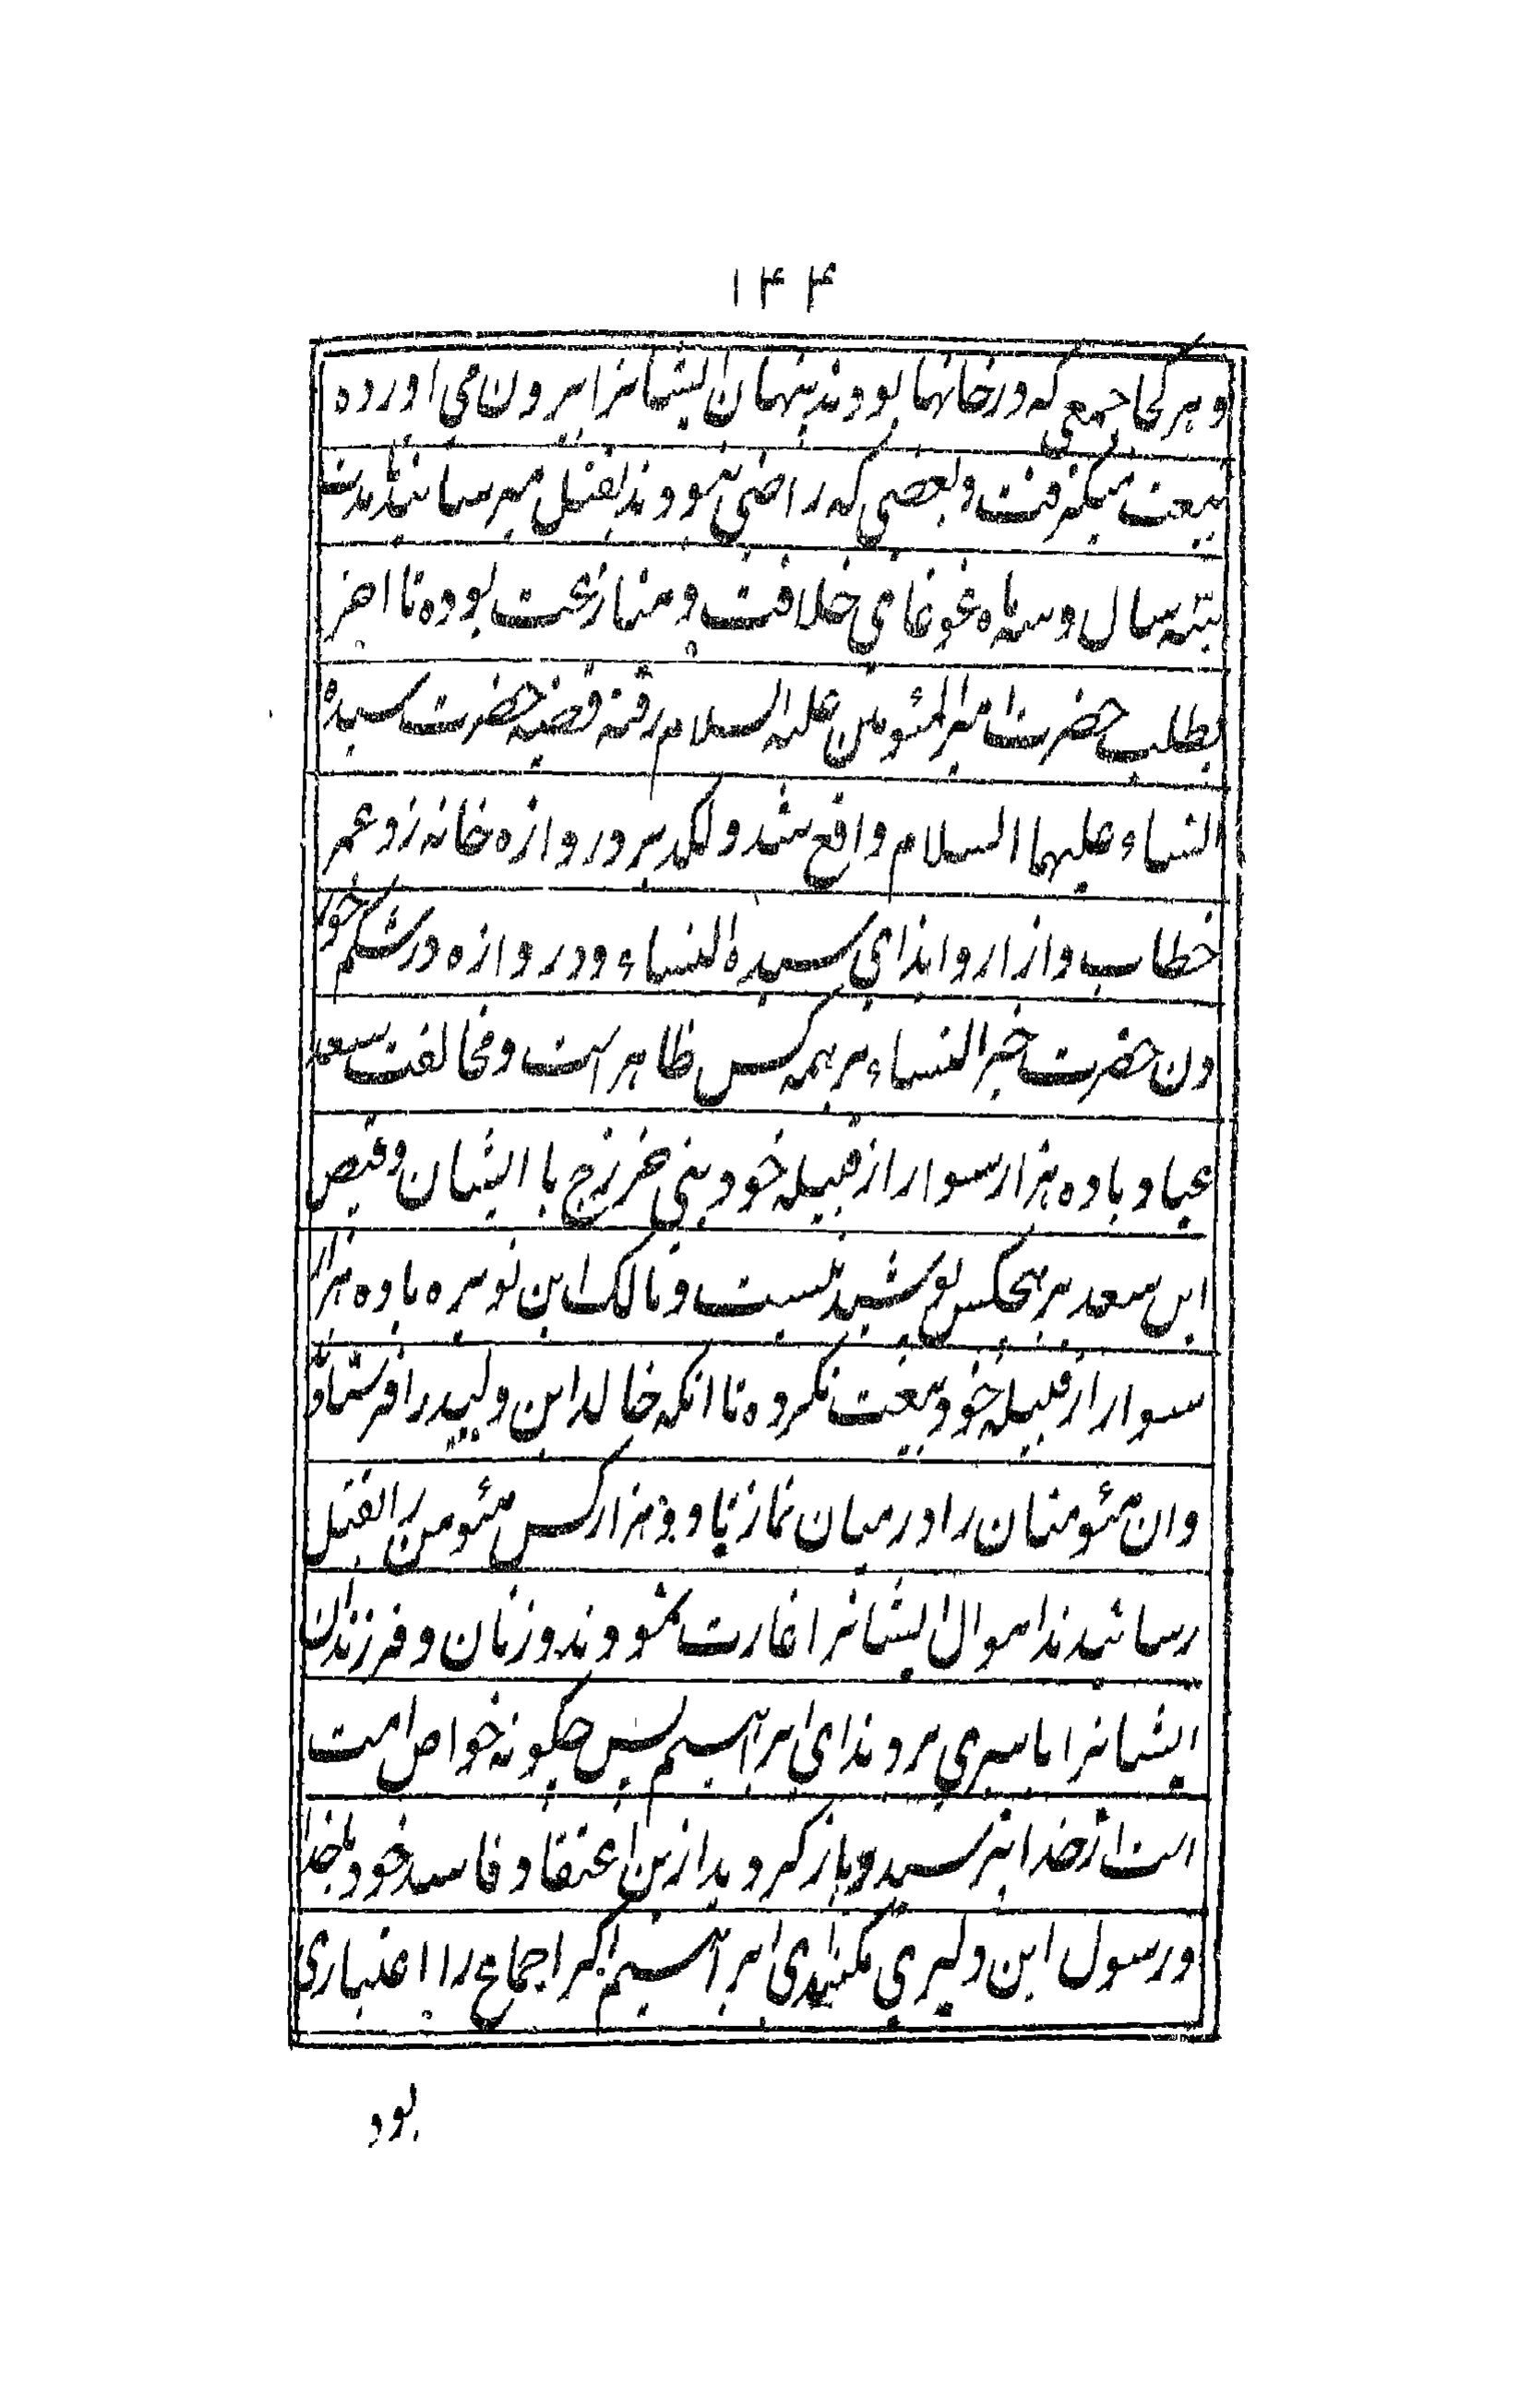 ۱۴۴
و هر کجا جمعی که در خانها بودند پنهان ایشانرا بیرون می اورده
بیعت میگرفت و بعضی که راضی نبودند بقتل میرسانیدند مدت
سه سال و سه ماه غوغای خلافت و منازعت بوده تا اخر
بطلب حضرت امیرالمئومنین علیه السلام رفته قضیه حضرت سیده
النساء علیهما السلام واقع شد و لکد بر دروازه خانه زد و عمر
خطاب و ازار و ایذای سیدهٔ النساء و دروازه در شکم خورد
دن حضرت خیر النساء بر همه کس ظاهر است و مخالفت سعد
عباد با ده هزار سوار از قبیله خود بنی خزرج با ایشان و قیص
ابن سعد بر هیچکس پوشید نیست و مالک ابن نویره با ده هزار
سوار از قبیله خود بیعت نکرده تا انکه خالد ابن ولید را فرستاد
وان مئومنان را در میان نماز هزار کس مئومن را بقتل
رسانیدند اموال ایشانرا غارت نمودند و زنان و فرزندان
ایشانرا باسیری بردند ای ابراهیم پس چکونه خواص امت
است از خدا بترسید و باز کردید ازین اعتقاد فاسد خود با خدا
و رسول این دلیری مکنید ای ابراهیم اکر اجماع را اعتباری
بود